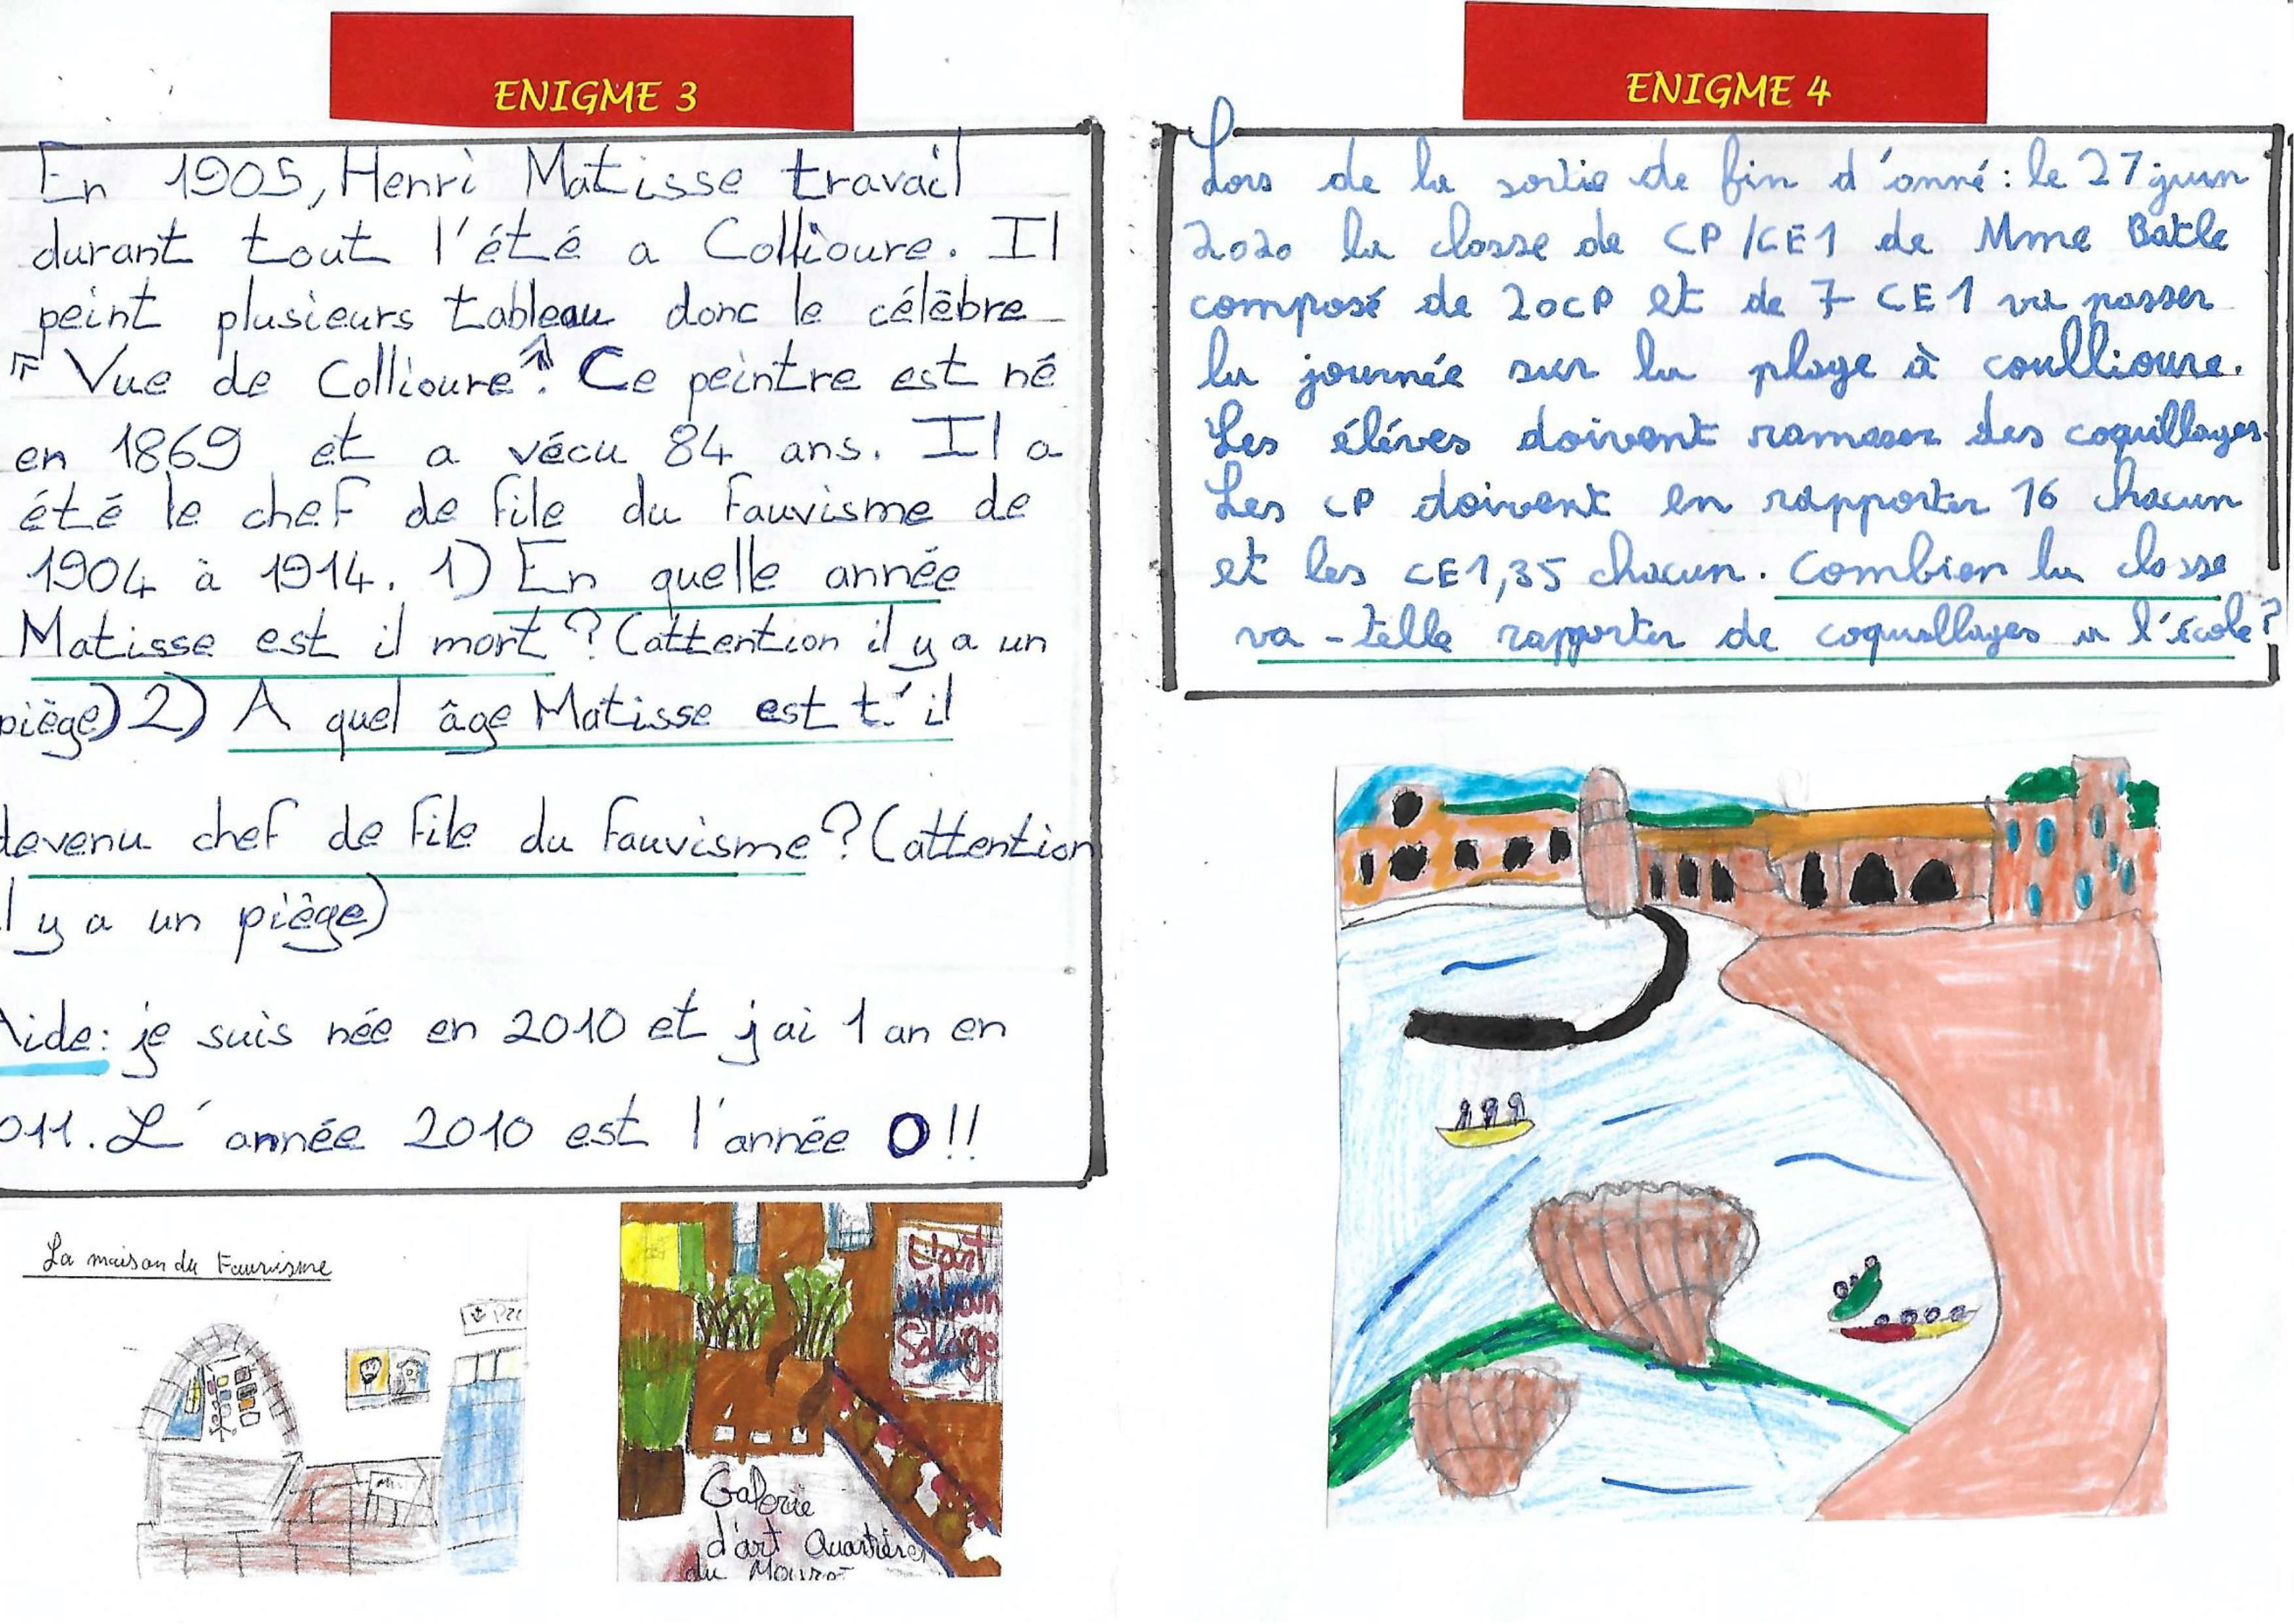 ENIGME 3
En 1905, Henri Matisse travail
durant tout l'été a Collioure. Il
peint plusieurs tableau donc le célèbre
"Vue de Collioure". Ce peintre est né
en 1869 et a vécu 84 ans. Il a
été le chef de file du Fauvisme de
1904 à 1914. 1) En quelle année
Matisse est il mort? (attention il y a un
piège) 2) A quel âge Matisse est t'il
devenu chef de file du fauvisme? (attention
il y a un piège)
Aide: je suis née en 2010 et j'ai 1 an en
011. L'année 2010 est l'année 0!!
La maison du Fauvisme
Galerie
d'art Quartier
du Mouré
ENIGME 4
Lors de la sortie de fin d'anné: le 27 juin
2020 la classe de CP/CE1 de Mme Batle
composé de 20CP et de 7 CE1 va passer
la journée sur la plage à coullioure.
Les éléves doivent ramasser des coquillages.
Les CP doivent en rapporter 16 chacun
et les CE1, 35 chacun. Combien la classe
va-telle rapporter de coquillages a l'école?